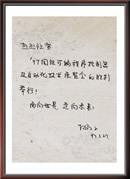 热烈祝贺
'97国际可编程序控制器
及自动化技术展览会的胜利
举行!
面向世界 走向未来